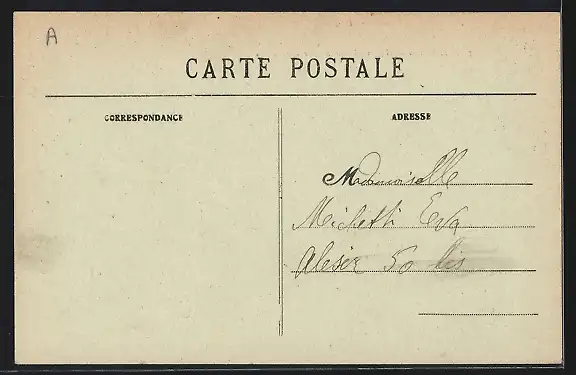 A
CARTE POSTALE
CORRESPONDANCE
ADRESSE
Mademoiselle
Michetti Eva
50 bis